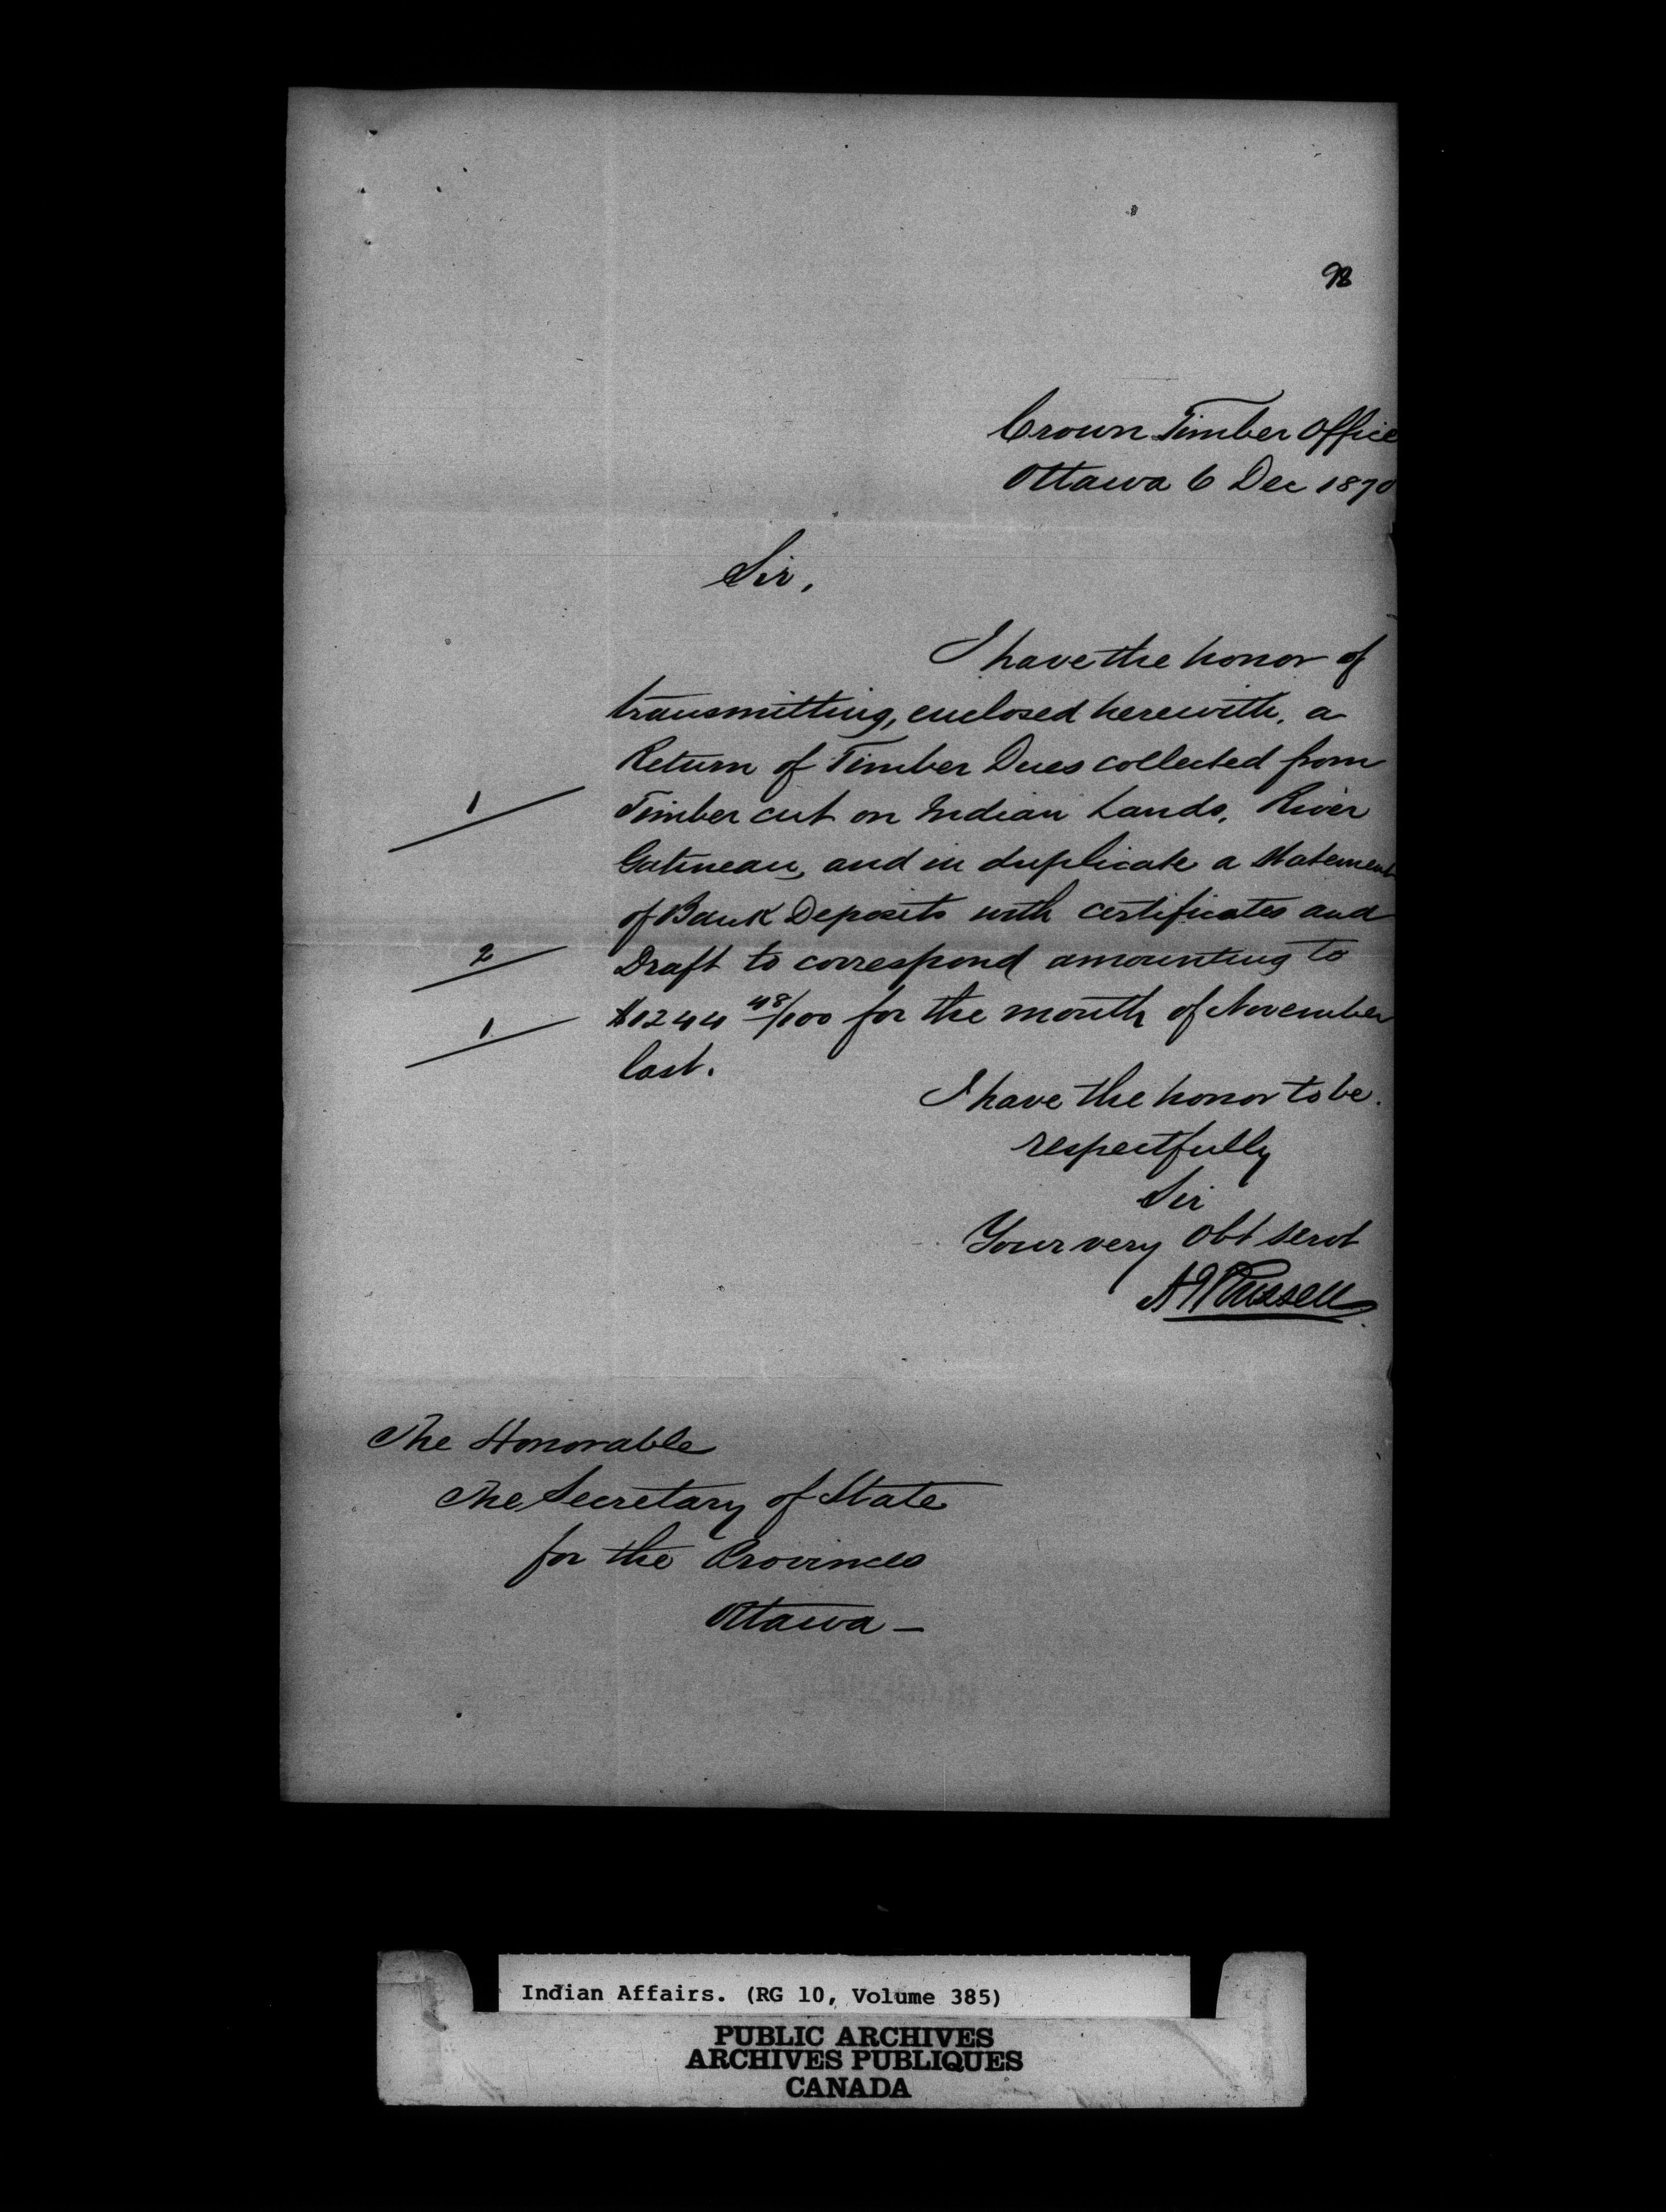 98
Crown Timber Office
Ottawa 6 Dec 1870
Sir,
I have the honor of
transmitting, enclosed herewith, a
Return of Timber Dues collected from
1
Timber cut on Indian Lands, River
Gatineau, and in duplicate a Statement
of Bank Deposits with certificates and
2
Draft to correspond amounting to
1
$1244 48/100 for the month of November
last.
I have the honor to be.
respectfully
Sir
Your very Obt servt
A J Russell
The Honorable
The Secretary of State
for the Provinces
Ottawa —
Indian Affairs. (RG 10, Volume 385)
PUBLIC ARCHIVES
ARCHIVES PUBLIQUES
CANADA